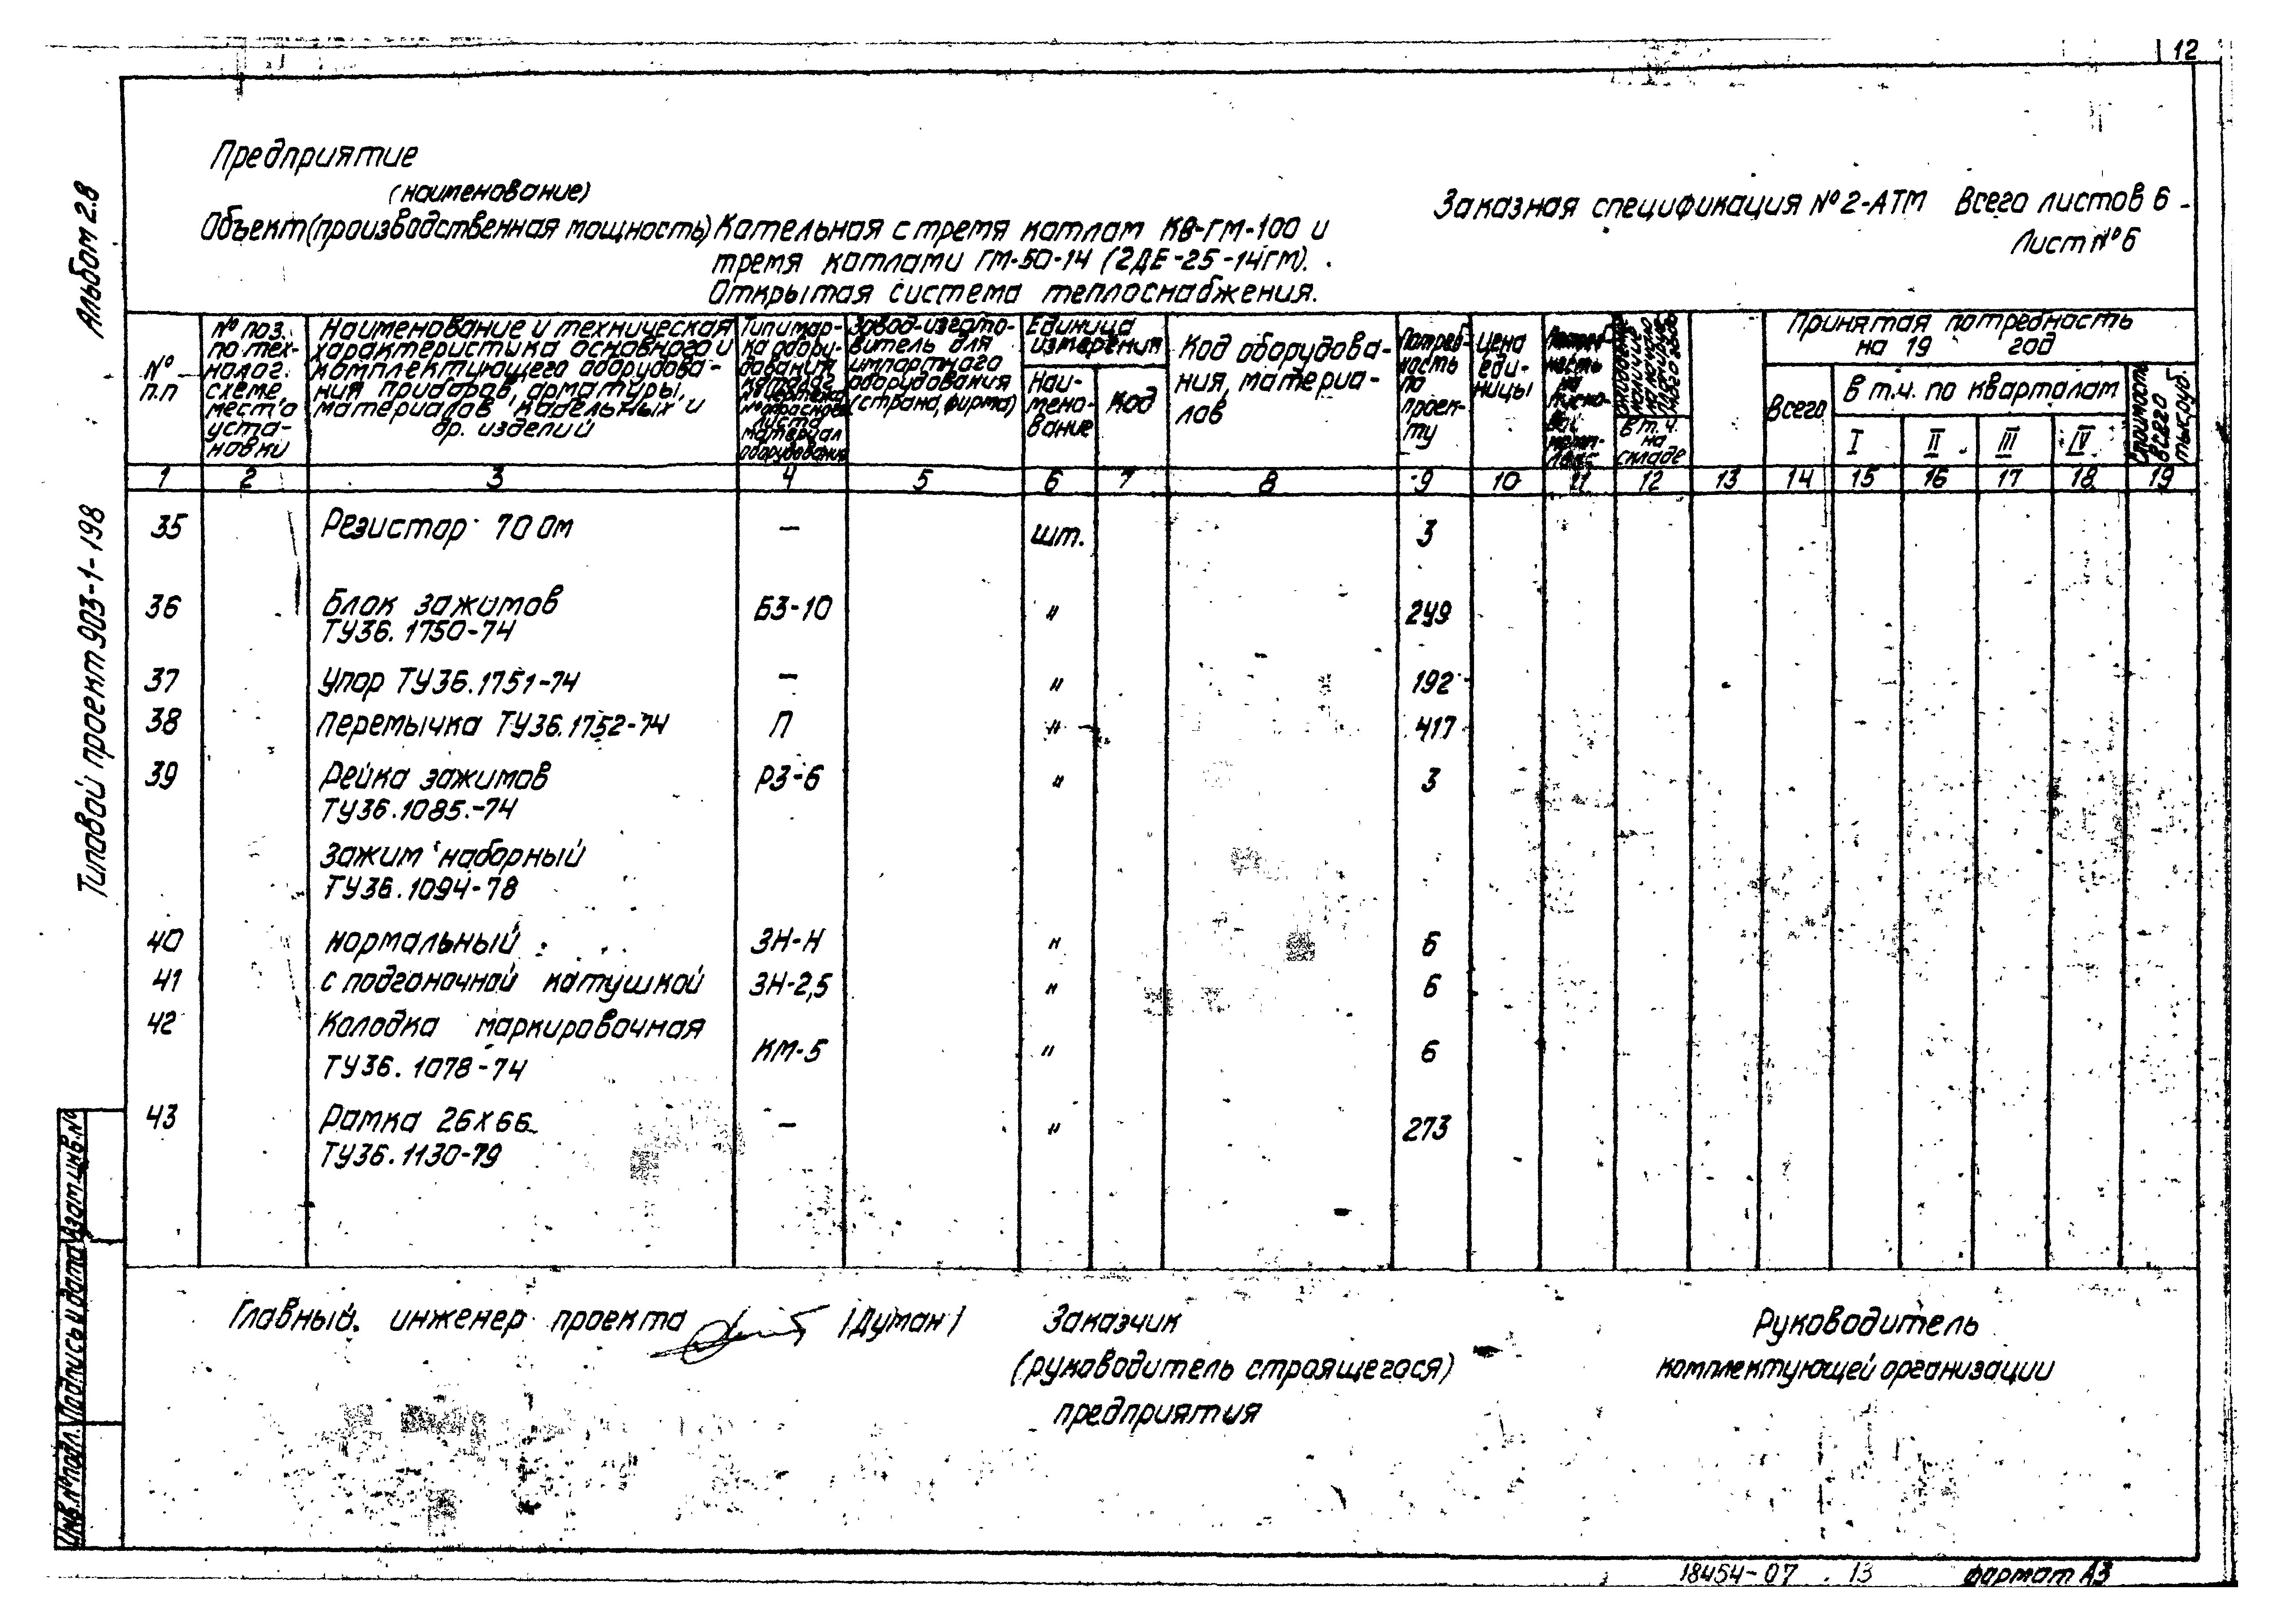 12
Альбом 2.8
Типовой проект 903-1-198
Предприятие
(наименование)
Объект (производственная мощность) Котельная с тремя котлам КВ-ГМ-100 и
тремя котлами ГМ-50-14 (2ДЕ-25-14ГМ).
Открытая система теплоснабжения.
Заказная спецификация №2-АТМ Всего листов 6
Лист №6
№ п.п
№ поз. по тех- нолог. схеме, место уста- новки
Наименование и техническая характеристика основного и комплектующего оборудова- ния, приборов, арматуры, материалов кабельных и др. изделий
Тип и мар- ка обору- дования каталог № чертежа № опросного листа материал оборудования
Завод-изгото- витель для импортного оборудования (страна, фирма)
Единица измерения
Наи- мено- вание
Код
Код оборудова- ния, материа- лов
Потреб- ность по проек- ту
Цена еди- ницы
в т.ч. на складе
Принятая потребность на 19 год
Всего
в т.ч. по кварталам
I II III IV
Стоимость всего тыс.руб.
1 2 3 4 5 6 7 8 9 10 11 12 13 14 15 16 17 18 19
35 Резистор 70 Ом — шт. 3
36 Блок зажимов БЗ-10 " 249
ТУ36.1750-74
37 Упор ТУ36.1751-74 — " 192
38 Перемычка ТУ36.1752-74 П " 417
39 Рейка зажимов РЗ-6 " 3
ТУ36.1085-74
Зажим наборный
ТУ36.1094-78
40 нормальный ЗН-Н " 6
41 с подгоночной катушкой ЗН-2,5 " 6
42 Колодка маркировочная
ТУ36.1078-74 КМ-5 " 6
43 Рамка 26х66 — " 273
ТУ36.1130-79
Главный инженер проекта /Думан/
Заказчик
(руководитель строящегося)
предприятия
Руководитель
комплектующей организации
Инв.№подл. Подпись и дата Взам.инв.№
18454-07 13 формат А3